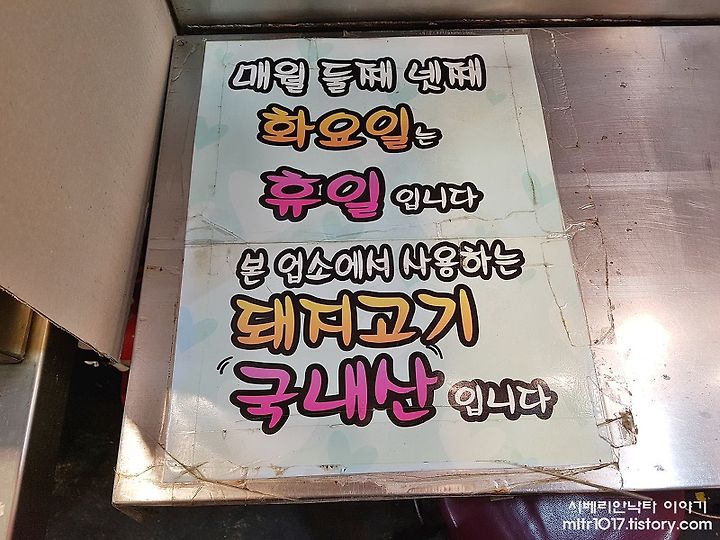 매월 둘째 넷째
화요일는
휴일입니다
본 업소에서 사용하는
돼지고기
국내산입니다
시베리안낙타 이야기
mltr1017.tistory.com